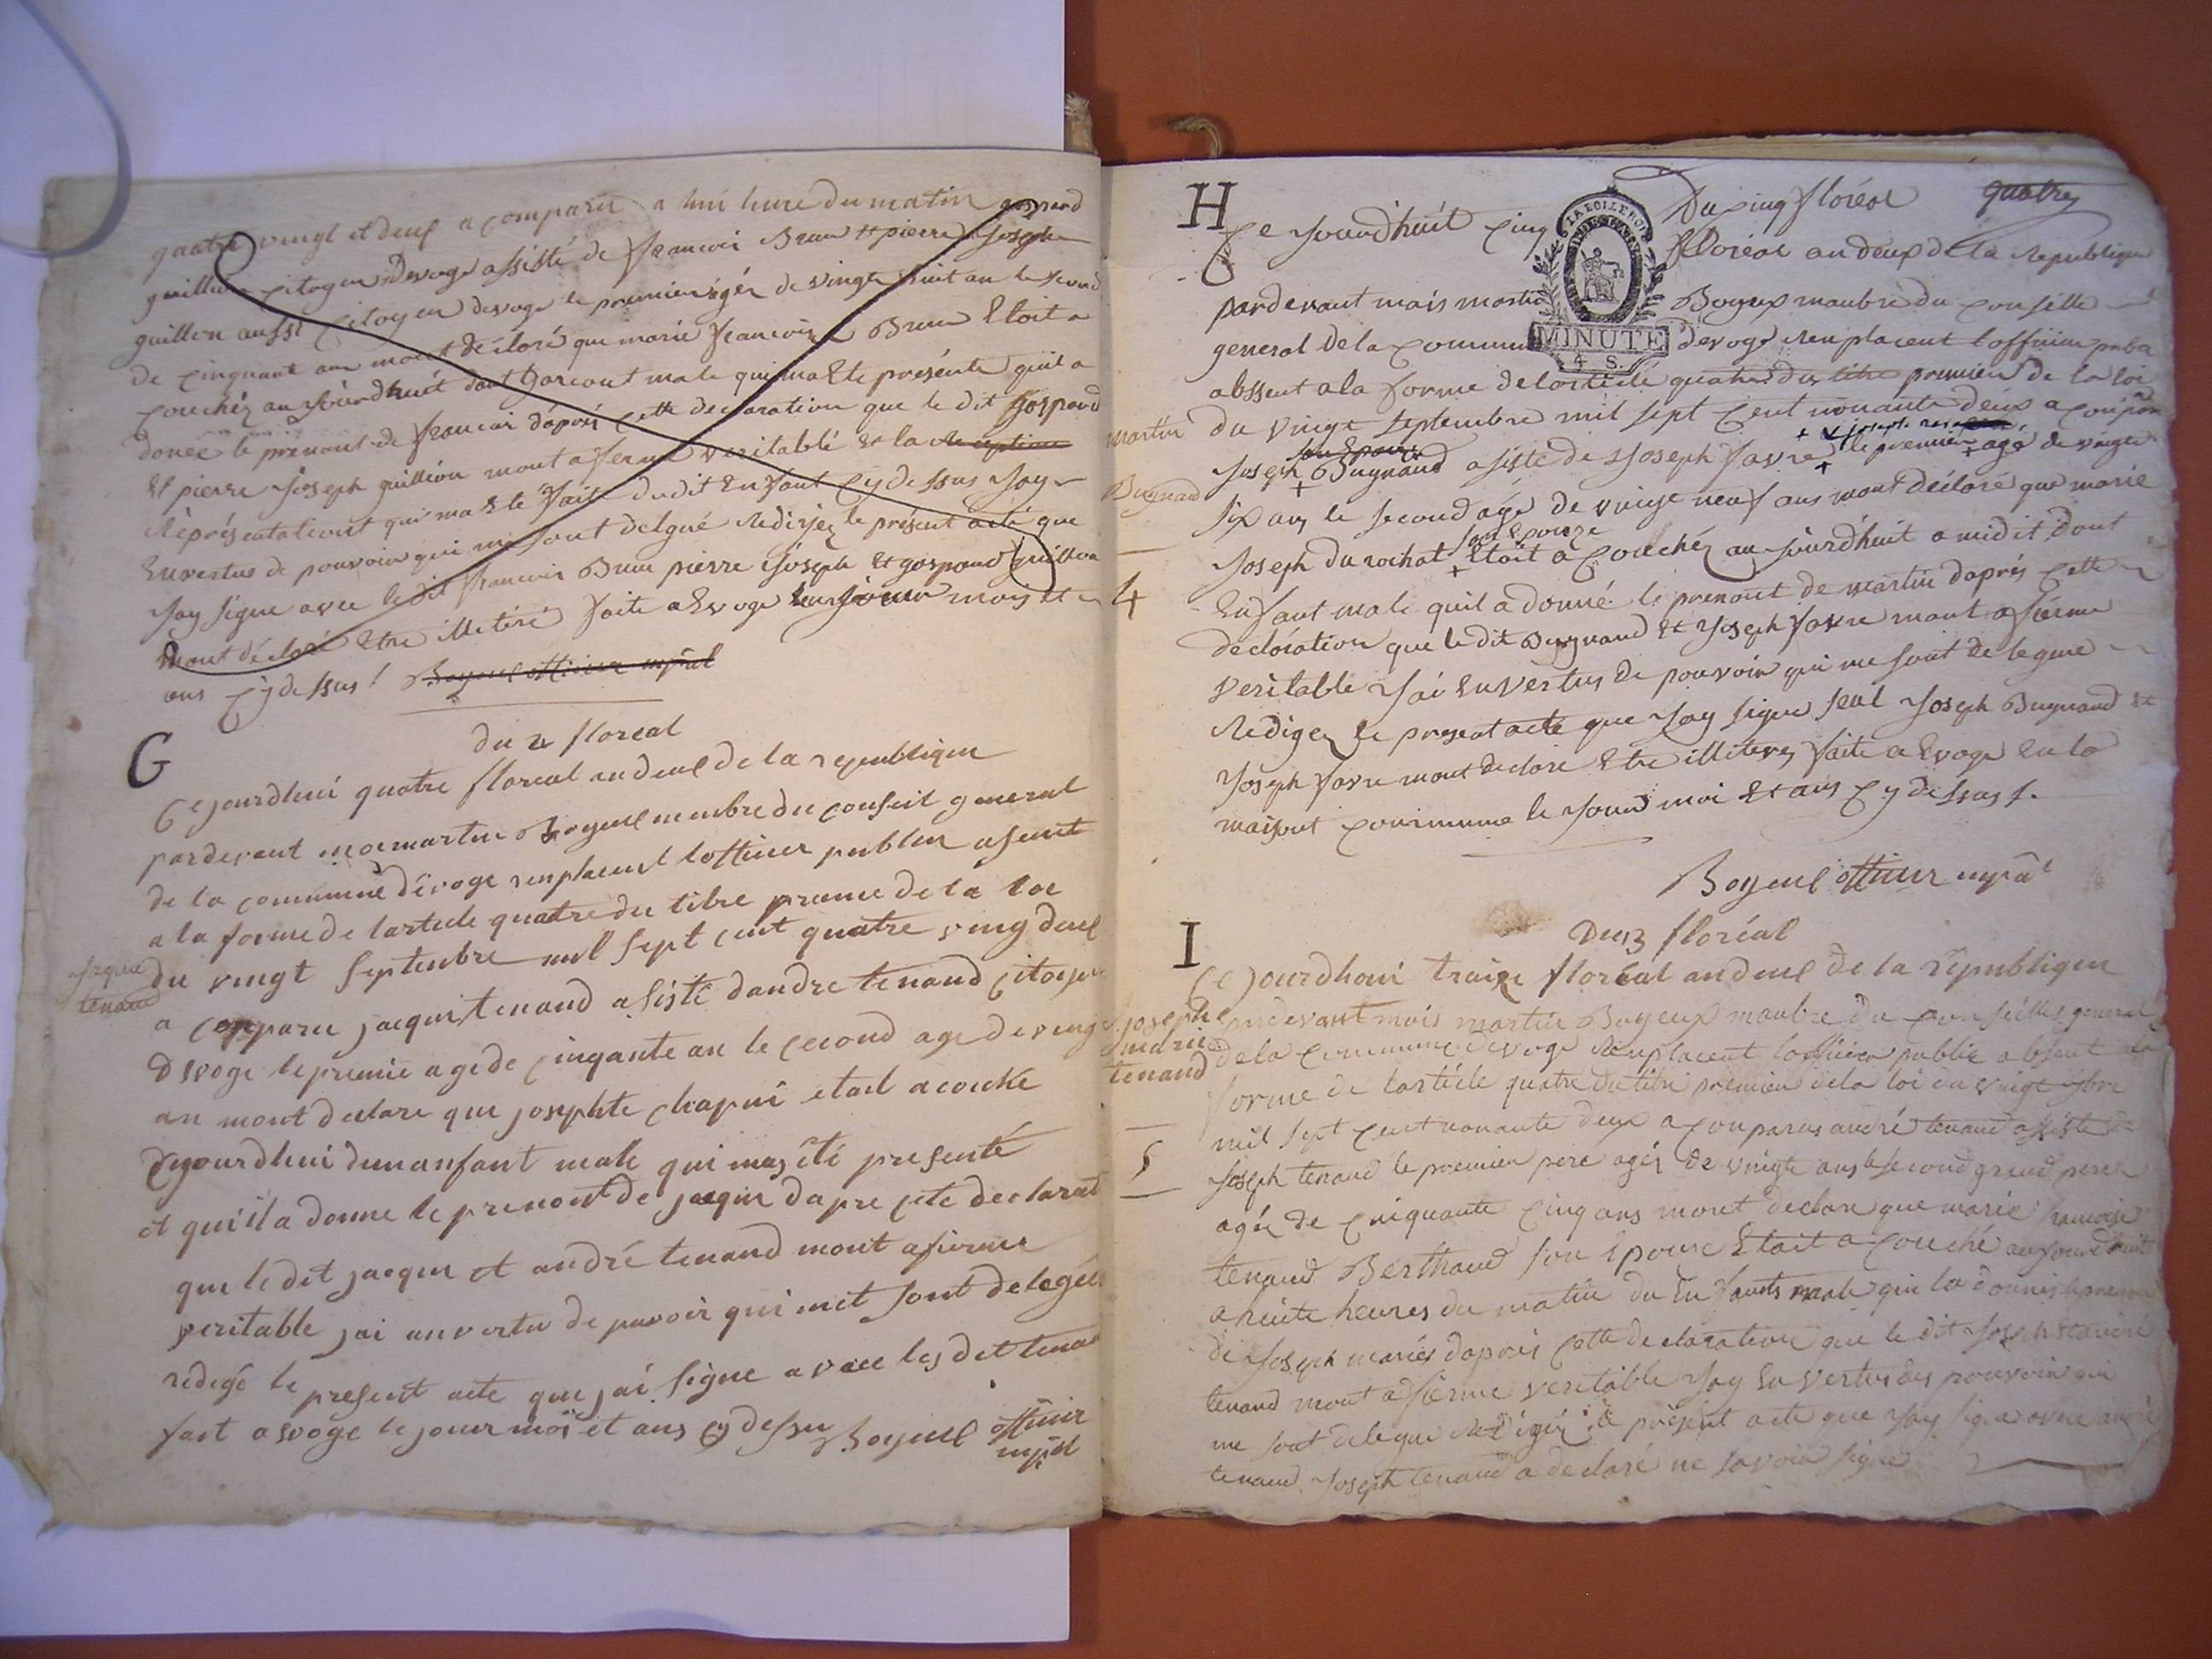 quatre vingt et deux a comparu a huit heure du matin gaspard
guillion citoyen devoge assisté de francois Brun et pierre Joseph
guillion aussi citoyen devoge le premier agé de vingt huit an le second
de cinquant ans mont déclaré que marie francoise Brun Etoit a
couchéz au jourdhuit dont garcont male qui ma Ete présente quil a
donée le prenont de francoi daprés cette declaration que le dit gaspard
Et pierre Joseph guillion mont aferme veritable Et la
Réprésentationt qui ma Eté faite dudit Enfant cy dessus Jay
Envertus de pouvoir qui me sont delgué Redirjez le présent acte que
Jay signe avec le dit francois Brun pierre joseph Et gaspard guillion
mont déclaré Etre illetéré faite a Evoge le jour mois et
ans cy dessus / Boyeux officier
G
du 4 floreal
Ce jourdhui quatre floreal an deux de la republique
pardevant moi martin Boyeux membre du conseil general
de la commune d'evoge remplacent lofficier publier asent
a la forme de larticle quatre du titre premie de la loi
du vingt septenbre mil sept cent quatre ving deux
Jaque
tenand
a conparu jacqui tenand asisté dandre tenand citoyen
devoge le premie age de cinqante an le cecond age de vengt
an mont declare que josephte chapui etait acouche
dejourdhui dun anfant male qui may été presenté
et quil a donne le prenont de jaque dapre cete declarat
que le dit jacque et andré tenand mont afirme
veritable jai an vertu de pavoir qui met sont delegé
redigé le present acte que jai signe avec les dit tena
fait a evoge le jour moi et ans cy dessu Boyeux officier
H
Du cinq floréal quatre
LA LOI LE ROI
MINUTE
4 S.
Ce Jourdhuit cinq floréal an deux de la Republique
pardevant mois martin Boyeux manbre du conseille
general de la commune devoge Remplacent loffisier
abssent a la forme de larticle quatre du titre premier de la loi
du vingt septembre mil sept cent nonante deux a
martin
Bugnand
Joseph Bugnand asiste de Joseph favre le premier agé de vingt
son Epouse
six ans le second agé de vingt neuf ans mont déclaré que marie
Joseph durochat Etoit a couchéz au jourdhuit a midit dont
son Epouze
4
Enfant male quil a donné le prenont de martin daprés cette
declaration que le dit Bugnand Et Joseph favre mont afserme
veritable Jai Envertus de pouvoir qui me sont delegue
Redigez le present acte que Jay signe seul Joseph Bugnand Et
Joseph favre mont declare Etre illiterez faite a Evoge En la
maisont commune le Jour moi Et ans cy dessus /.
Boyeux officier
I
Du 13 floréal
Ce jourdhoui traize floréal an deux de la république
joseph
marie
tenand
pardevant mois martin Boyeux manbre du conseille general
de la commune devoge Remplacent loffisier publie absent a la
forme de larticle quatre du titre premier de la loi du vingt 7bre
mil sept cent nonante deux a conparus andré tenand assiste de
5
Joseph tenand le premier pere agéz de vingte ans le second grend pere
agéz de cinquante cinq ans mont declare que marie francoise
tenand Berthand son Epouse Etait a couché au jourdhuit
a huite heures du matin du Enfants male qui la donnés le prenon
de Joseph mariés daprés cette declaration que le dit Joseph et andré
tenand mont afserme veritable Jay En vertus des pouvoir qui
me sont delegue Redigér le présent acte que Jay signe avec andré
tenand Joseph tenand a declaré ne savoir signe